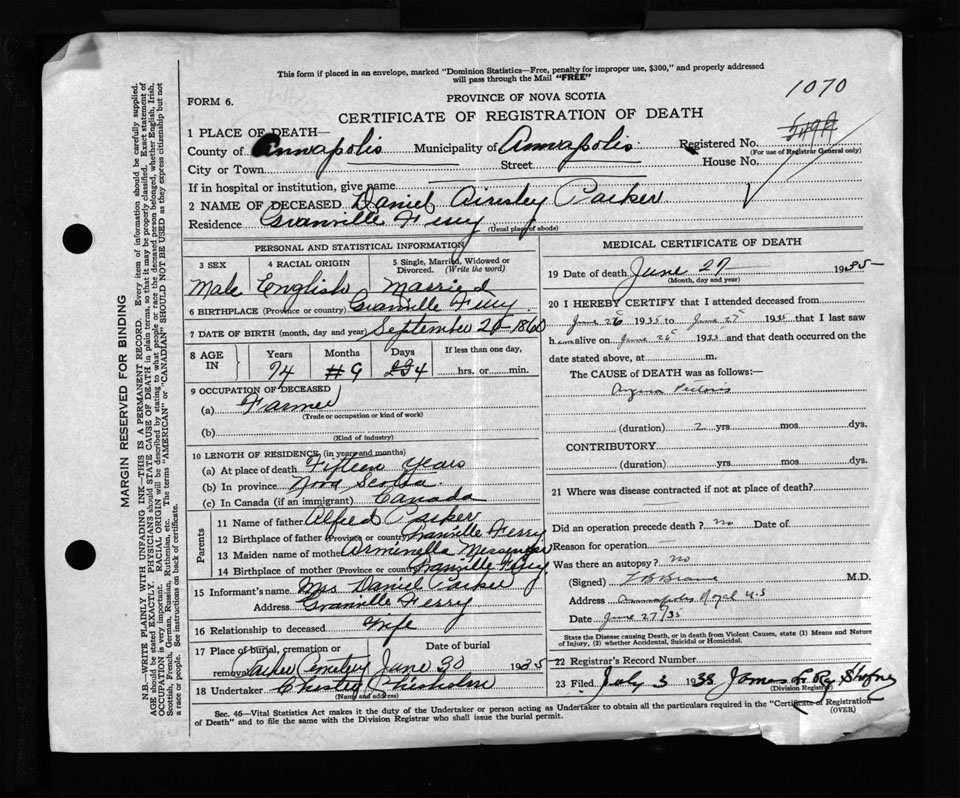 This form if placed in an envelope, marked "Dominion Statistics—Free, penalty for improper use, $300," and properly addressed
will pass through the Mail "FREE"
1070
FORM 6.
PROVINCE OF NOVA SCOTIA
CERTIFICATE OF REGISTRATION OF DEATH
1 PLACE OF DEATH—
County of Annapolis Municipality of Annapolis Registered No.
(For use of Registrar General only)
City or Town Street House No.
If in hospital or institution, give name
2 NAME OF DECEASED Daniel Parker
Residence Granville Ferry (Usual place of abode)
PERSONAL AND STATISTICAL INFORMATION
3 SEX 4 RACIAL ORIGIN 5 Single, Married, Widowed or Divorced. (Write the word)
Male English Married
6 BIRTHPLACE (Province or country) Granville Ferry
7 DATE OF BIRTH (month, day and year) September 1860
8 AGE IN Years Months Days If less than one day,
74 9 4 hrs. or min.
9 OCCUPATION OF DECEASED
(a) Farmer
(Trade or occupation or kind of work)
(b)
(Kind of industry)
10 LENGTH OF RESIDENCE (in years and months)
(a) At place of death Fifteen Years
(b) In province Nova Scotia.
(c) In Canada (if an immigrant) Canada
Parents
11 Name of father Alfred Parker
12 Birthplace of father (Province or country) Granville Ferry
13 Maiden name of mother Armenella Messenger
14 Birthplace of mother (Province or country) Granville Ferry
15 Informant's name Mrs Daniel Parker
Address Granville Ferry
16 Relationship to deceased Wife
17 Place of burial, cremation or removal Date of burial
Parker Cemetery June 30 1935
18 Undertaker Chester Chisholm
(Name and address)
MEDICAL CERTIFICATE OF DEATH
19 Date of death June 27 1935
(Month, day and year)
20 I HEREBY CERTIFY that I attended deceased from
June 26 1935 to June 27 1935 that I last saw
him alive on June 26 1935 and that death occurred on the
date stated above, at m.
The CAUSE OF DEATH was as follows:—
Angina Pectoris
(duration) 2 yrs mos. dys.
CONTRIBUTORY.
(duration) yrs mos. dys.
21 Where was disease contracted if not at place of death?
Did an operation precede death? no Date of
Reason for operation
Was there an autopsy? no
(Signed) M.D.
Address Annapolis Royal N.S
Date June 27/35
State the Disease causing Death, or in death from Violent Causes, state (1) Means and Nature
of Injury, (2) whether Accidental, Suicidal or Homicidal.
22 Registrar's Record Number
23 Filed July 3 1935 James
(Division Registrar)
Sec. 46—Vital Statistics Act makes it the duty of the Undertaker or person acting as Undertaker to obtain all the particulars required in the "Certificate of Registration
of Death" and to file the same with the Division Registrar who shall issue the burial permit.
(OVER)
MARGIN RESERVED FOR BINDING
N.B.—WRITE PLAINLY WITH UNFADING INK—THIS IS A PERMANENT RECORD. Every item of information should be carefully supplied.
AGE should be stated EXACTLY. PHYSICIANS should STATE CAUSE OF DEATH in plain terms, so that it may be properly classified. Exact statement of
OCCUPATION is very important. RACIAL ORIGIN will be described by stating to what people or race the deceased person belonged, whether English, Irish,
Scottish, French, German, Russian, Ruthenian, etc. The terms "AMERICAN" or "CANADIAN" SHOULD NOT BE USED as they express citizenship but not
a race or people. See instructions on back of certificate.